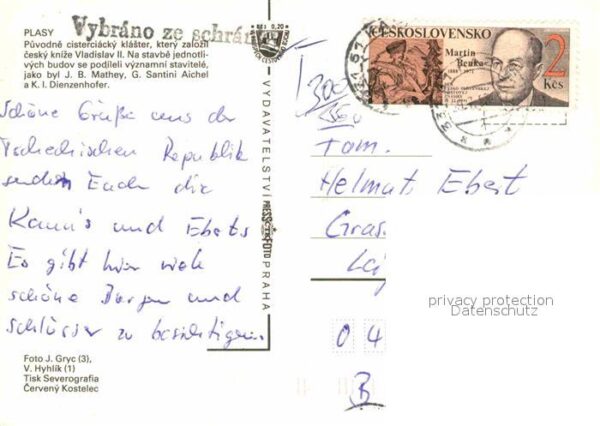 PLASY
Původně cisterciácký klášter, který založil
český kníže Vladislav II. Na stavbě jednotli-
vých budov se podíleli významní stavitelé,
jako byl J. B. Mathey, G. Santini Aichel
a K. I. Dienzenhofer.
Vybráno ze schrán
Schöne Grüße aus der
Tschechischen Republik
senden Euch die
und Eberts
Es gibt hier viele
schöne Burgen und
Schlösser zu besichtigen.
Foto J. Gryc (3),
V. Hyhlík (1)
Tisk Severografia
Červený Kostelec
VYDAVATELSTVÍ PRESSFOTO PRAHA
ČESKOSLOVENSKO
Martin
Benka
1888 - 1971
2
Kčs
Fam.
Helmut Ebert
Gras
0 4
B
privacy protection
Datenschutz